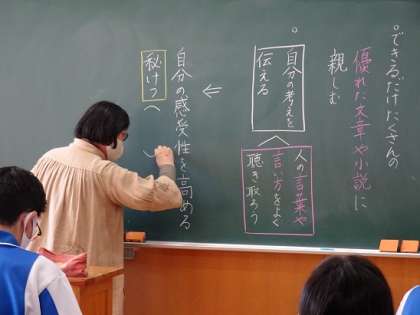 ○できるだけたくさんの
優れた文章や小説に
親しむ
○
自分の考えを
伝える
人の言葉や
言い方をよく
聴き取ろう
←
自分の感受性を高める
秘けつ